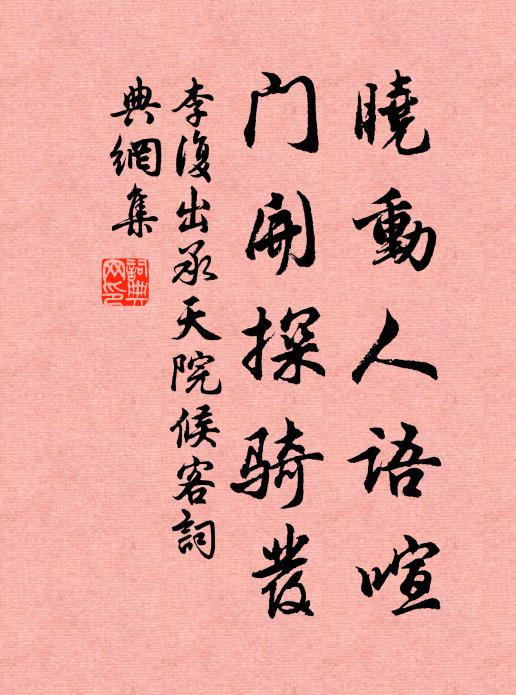 曉動人語喧
門開探騎發
李復出承天院候客詞
典網集
詞典網印